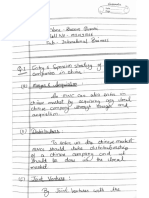 Sub:- International Business
Q.1 Entry & Expansion strategy of
companies in china
(a) Merger & Acquisition
A MNC can also enter in
chinese market by acquiring any local
chinese company through merger and
acquisition.
(b) Distributors
To enter in the chinese market
MNC should take distributorship
of a chinese company and it
should done in the local
market
(c) Joint Venture :-
By Joint Ventures with the